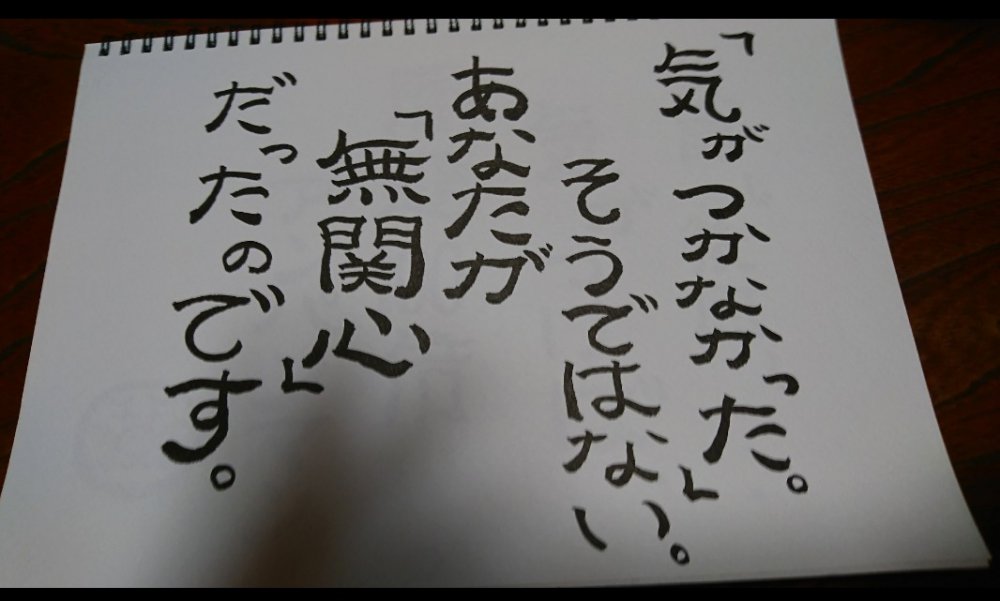 「気がつかなかった。」
そうではない。
あなたが
「無関心」
だったのです。